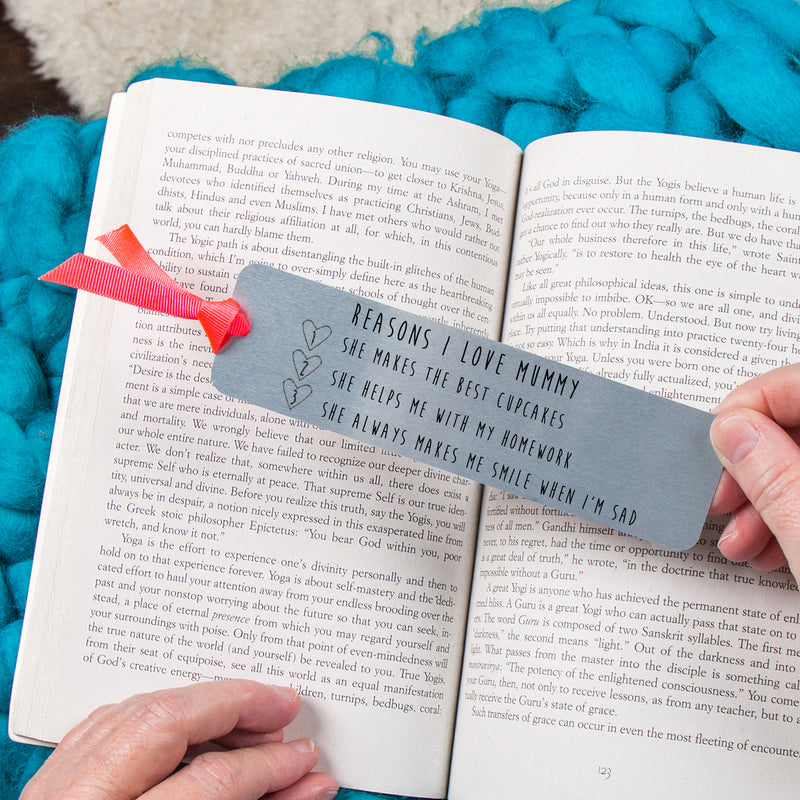 competes with nor precludes any other religion. You may use your Yoga—
your disciplined practices of sacred union—to get closer to Krishna, Jesus,
Muhammad, Buddha or Yahweh. During my time at the Ashram, I met
devotees who identified themselves as practicing Christians, Jews, Bud-
dhists, Hindus and even Muslims. I have met others who would rather not
talk about their religious affiliation at all, for which, in this contentious
world, you can hardly blame them.
The Yogic path is about disentangling the built-in glitches of the human
condition, which I'm going to over-simply define here as the heartbreaking
ability to sustain
schools of thought over the cen-
inherently
tion attributes
is the inevitable
civilization's need
"Desire is the design
ment is a simple case
that we are mere individuals, alone with
and mortality. We wrongly believe that our limited little
our whole entire nature. We have failed to recognize our deeper divine char-
acter. We don't realize that, somewhere within us all, there does exist a
supreme Self who is eternally at peace. That supreme Self is our true iden-
tity, universal and divine. Before you realize this truth, say the Yogis, you will
always be in despair, a notion nicely expressed in this exasperated line from
the Greek stoic philosopher Epictetus: "You bear God within you, poor
wretch, and know it not."
Yoga is the effort to experience one's divinity personally and then to
hold on to that experience forever. Yoga is about self-mastery and the dedi-
cated effort to haul your attention away from your endless brooding over the
past and your nonstop worrying about the future so that you can seek, in-
stead, a place of eternal presence from which you may regard yourself and
your surroundings with poise. Only from that point of even-mindedness will
the true nature of the world (and yourself) be revealed to you. True Yogis,
from their seat of equipoise, see all this world as an equal manifestation
of God's creative energy—men, women, children, turnips, bedbugs, coral:
REASONS I LOVE MUMMY
1 SHE MAKES THE BEST CUPCAKES
2 SHE HELPS ME WITH MY HOMEWORK
3 SHE ALWAYS MAKES ME SMILE WHEN I'M SAD
it's all God in disguise. But the Yogis believe a human life is
opportunity, because only in a human form and only with a hum
God-realization ever occur. The turnips, the bedbugs, the coral
get a chance to find out who they really are. But we do have tha
"Our whole business therefore in this life," wrote Saint
rather Yogically, "is to restore to health the eye of the heart w
may be seen."
Like all great philosophical ideas, this one is simple to unde
virtually impossible to imbibe. OK—so we are all one, and divin
within us all equally. No problem. Understood. But now try living
place. Try putting that understanding into practice twenty-four h
not so easy. Which is why in India it is considered a given that
your Yoga. Unless you were born one of those
life already fully actualized, you'
enlightenment.
"I say
fortified without
ness of all men." Gandhi himself
never, to his regret, had the time or opportunity
is a great deal of truth," he wrote, "in the doctrine that true
impossible without a Guru."
A great Yogi is anyone who has achieved the permanent state of enl
ened bliss. A Guru is a great Yogi who can actually pass that state on to
ers. The word Guru is composed of two Sanskrit syllables. The first me
"darkness," the second means "light." Out of the darkness and into
light. What passes from the master into the disciple is something call
mantravirya: "The potency of the enlightened consciousness." You come
your Guru, then, not only to receive lessons, as from any teacher, but to a
tually receive the Guru's state of grace.
Such transfers of grace can occur in even the most fleeting of encounte
123